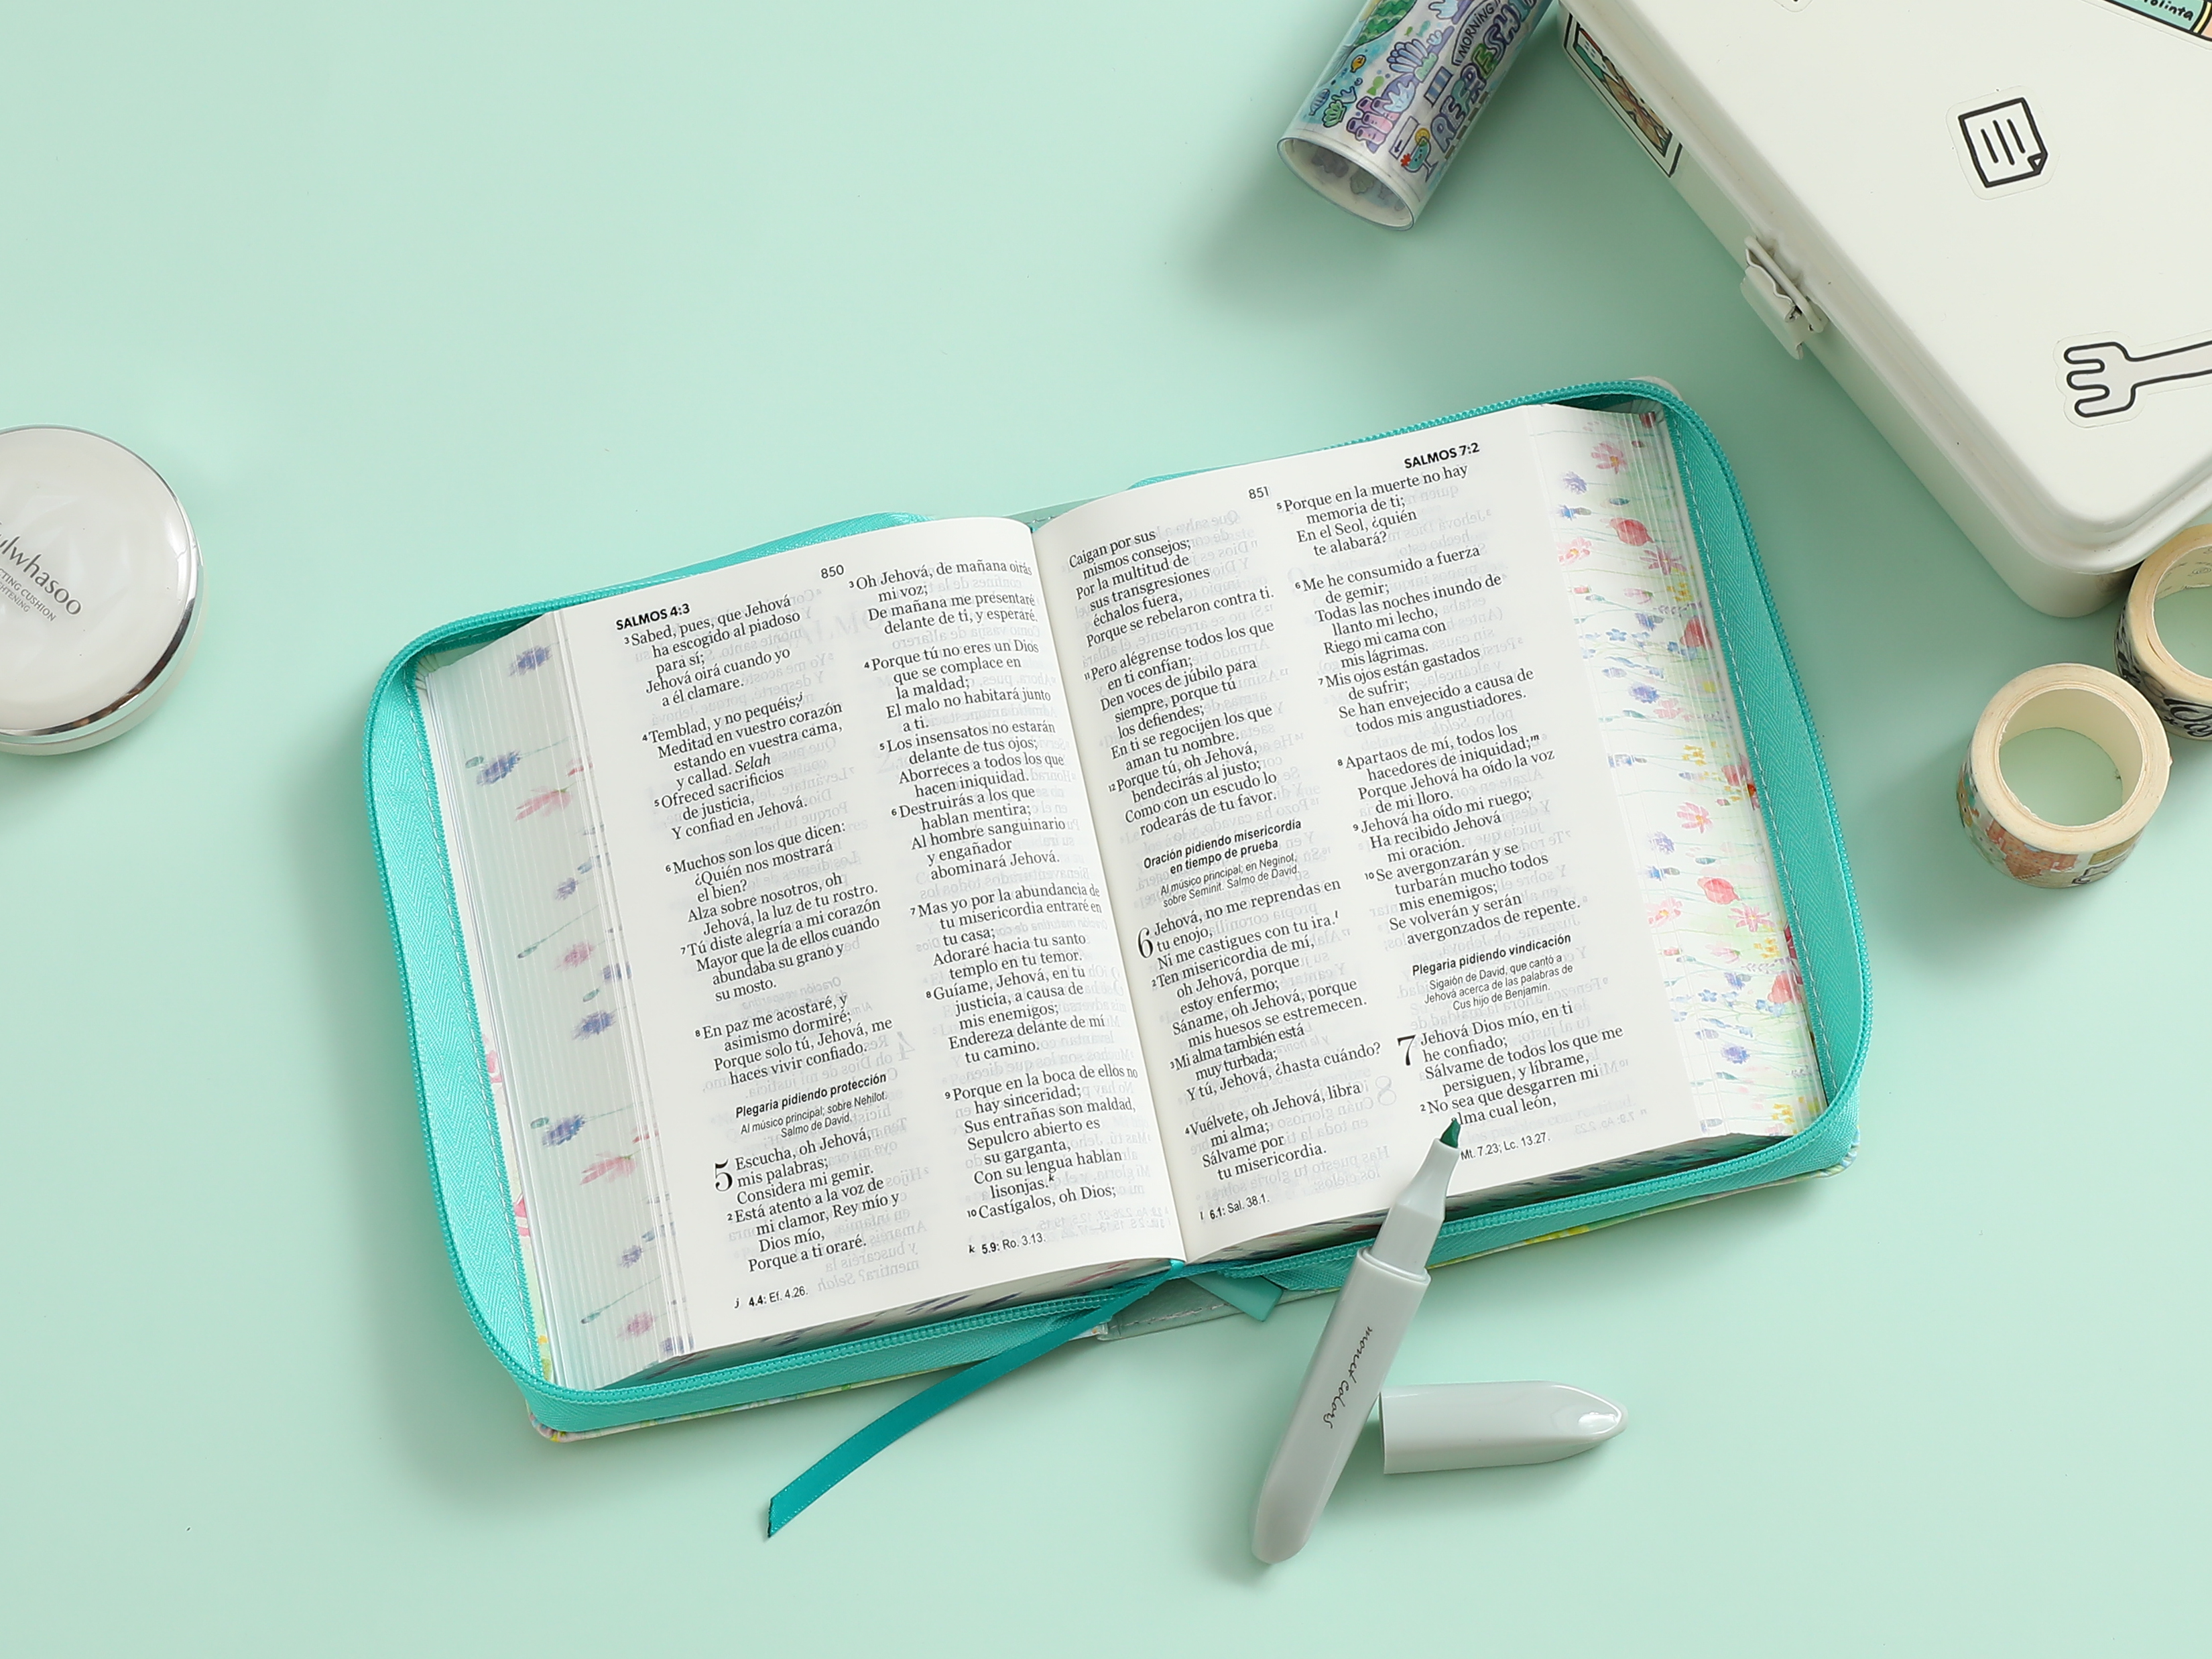 SALMOS 4:3
850
³Sabed, pues, que Jehová
ha escogido al piadoso
para sí;
Jehová oirá cuando yo
a él clamare.
⁴Temblad, y no pequéis;ʲ
Meditad en vuestro corazón
estando en vuestra cama,
y callad. Selah
⁵Ofreced sacrificios
de justicia,
Y confiad en Jehová.
⁶Muchos son los que dicen:
¿Quién nos mostrará
el bien?
Alza sobre nosotros, oh
Jehová, la luz de tu rostro.
⁷Tú diste alegría a mi corazón
Mayor que la de ellos cuando
abundaba su grano y
su mosto.
⁸En paz me acostaré, y
asimismo dormiré;
Porque solo tú, Jehová, me
haces vivir confiado.
Plegaria pidiendo protección
Al músico principal; sobre Nehilot.
Salmo de David.
5 Escucha, oh Jehová,
mis palabras;
Considera mi gemir.
²Está atento a la voz de
mi clamor, Rey mío y
Dios mío,
Porque a ti oraré.
j 4.4: Ef. 4.26.
³Oh Jehová, de mañana oirás
mi voz;
De mañana me presentaré
delante de ti, y esperaré.
⁴Porque tú no eres un Dios
que se complace en
la maldad;
El malo no habitará junto
a ti.
⁵Los insensatos no estarán
delante de tus ojos;
Aborreces a todos los que
hacen iniquidad.
⁶Destruirás a los que
hablan mentira;
Al hombre sanguinario
y engañador
abominará Jehová.
⁷Mas yo por la abundancia de
tu misericordia entraré en
tu casa;
Adoraré hacia tu santo
templo en tu temor.
⁸Guíame, Jehová, en tu
justicia, a causa de
mis enemigos;
Endereza delante de mí
tu camino.
⁹Porque en la boca de ellos no
hay sinceridad;
Sus entrañas son maldad,
Sepulcro abierto es
su garganta,
Con su lengua hablan
lisonjas.ᵏ
¹⁰Castígalos, oh Dios;
k 5.9: Ro. 3.13.
851
SALMOS 7:2
Caigan por sus
mismos consejos;
Por la multitud de
sus transgresiones
échalos fuera,
Porque se rebelaron contra ti.
¹¹Pero alégrense todos los que
en ti confían;
Den voces de júbilo para
siempre, porque tú
los defiendes;
En ti se regocijen los que
aman tu nombre.
¹²Porque tú, oh Jehová,
bendecirás al justo;
Como con un escudo lo
rodearás de tu favor.
Oración pidiendo misericordia
en tiempo de prueba
Al músico principal; en Neginot,
sobre Seminit. Salmo de David.
6 Jehová, no me reprendas en
tu enojo,
Ni me castigues con tu ira.ˡ
²Ten misericordia de mí,
oh Jehová, porque
estoy enfermo;
Sáname, oh Jehová, porque
mis huesos se estremecen.
³Mi alma también está
muy turbada;
Y tú, Jehová, ¿hasta cuándo?
⁴Vuélvete, oh Jehová, libra
mi alma;
Sálvame por
tu misericordia.
l 6.1: Sal. 38.1.
⁵Porque en la muerte no hay
memoria de ti;
En el Seol, ¿quién
te alabará?
⁶Me he consumido a fuerza
de gemir;
Todas las noches inundo de
llanto mi lecho,
Riego mi cama con
mis lágrimas.
⁷Mis ojos están gastados
de sufrir;
Se han envejecido a causa de
todos mis angustiadores.
⁸Apartaos de mí, todos los
hacedores de iniquidad;ᵐ
Porque Jehová ha oído la voz
de mi lloro.
⁹Jehová ha oído mi ruego;
Ha recibido Jehová
mi oración.
¹⁰Se avergonzarán y se
turbarán mucho todos
mis enemigos;
Se volverán y serán
avergonzados de repente.
Plegaria pidiendo vindicación
Sigaión de David, que cantó a
Jehová acerca de las palabras de
Cus hijo de Benjamín.
7 Jehová Dios mío, en ti
he confiado;
Sálvame de todos los que me
persiguen, y líbrame,
²No sea que desgarren mi
alma cual león,
Mt. 7.23; Lc. 13.27.
monet colors
MORNING
REFRESH
ulwhasoo
CTING CUSHION
olinta